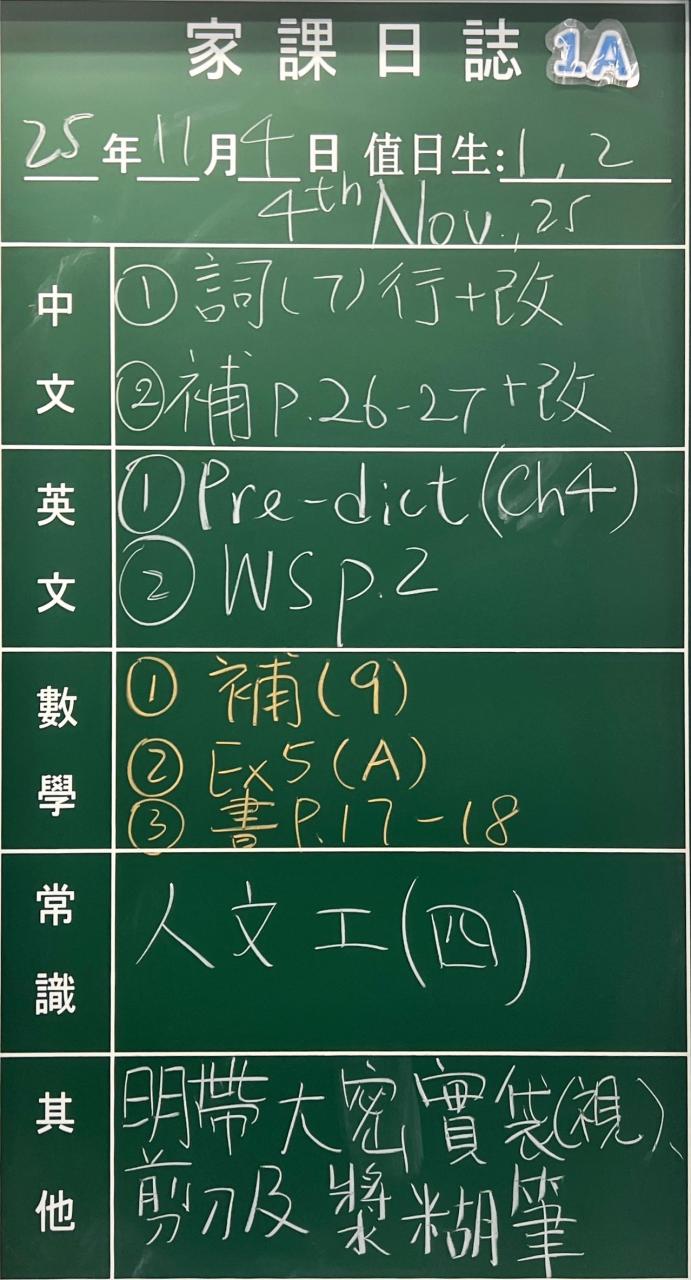 家課日誌 1A
25年11月4日 值日生:1,2
4th Nov.,25
中文
①詞(7)行+改
②補P.26-27+改
英文
①Pre-dict(Ch4)
②WS p.2
數學
①補(9)
②Ex5(A)
③書P.17-18
常識
人文工(四)
其他
明帶大密實袋(視)、
剪刀及漿糊筆